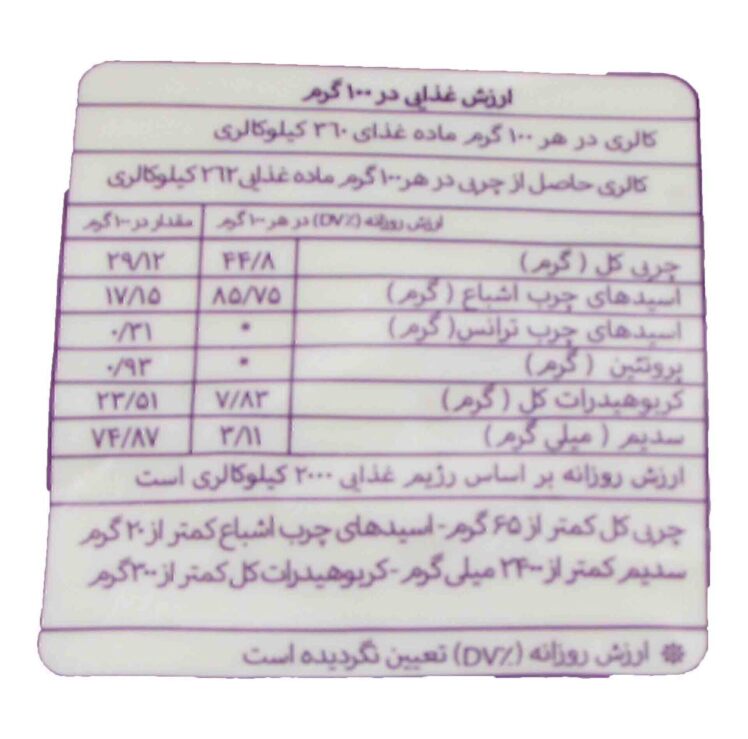 ارزش غذایی در ۱۰۰ گرم
کالری در هر ۱۰۰ گرم ماده غذای ۳۶۰ کیلوکالری
کالری حاصل از چربی در هر ۱۰۰ گرم ماده غذایی ۲۶۲ کیلوکالری
ارزش روزانه (DV٪) در هر ۱۰۰ گرم مقدار در ۱۰۰ گرم
چربی کل ( گرم) ۴۴/۸ ۲۹/۱۲
اسیدهای چرب اشباع ( گرم) ۸۵/۷۵ ۱۷/۱۵
اسیدهای چرب ترانس( گرم) * ۰/۳۱
پروتئین ( گرم) * ۰/۹۳
کربوهیدرات کل ( گرم) ۷/۸۳ ۲۳/۵۱
سدیم ( میلی گرم) ۳/۱۱ ۷۴/۸۷
ارزش روزانه بر اساس رژیم غذایی ۲۰۰۰ کیلوکالری است
چربی کل کمتر از ۶۵ گرم - اسیدهای چرب اشباع کمتر از ۲۰ گرم
سدیم کمتر از ۲۴۰۰ میلی گرم - کربوهیدرات کل کمتر از ۳۰۰ گرم
* ارزش روزانه (DV٪) تعیین نگردیده است